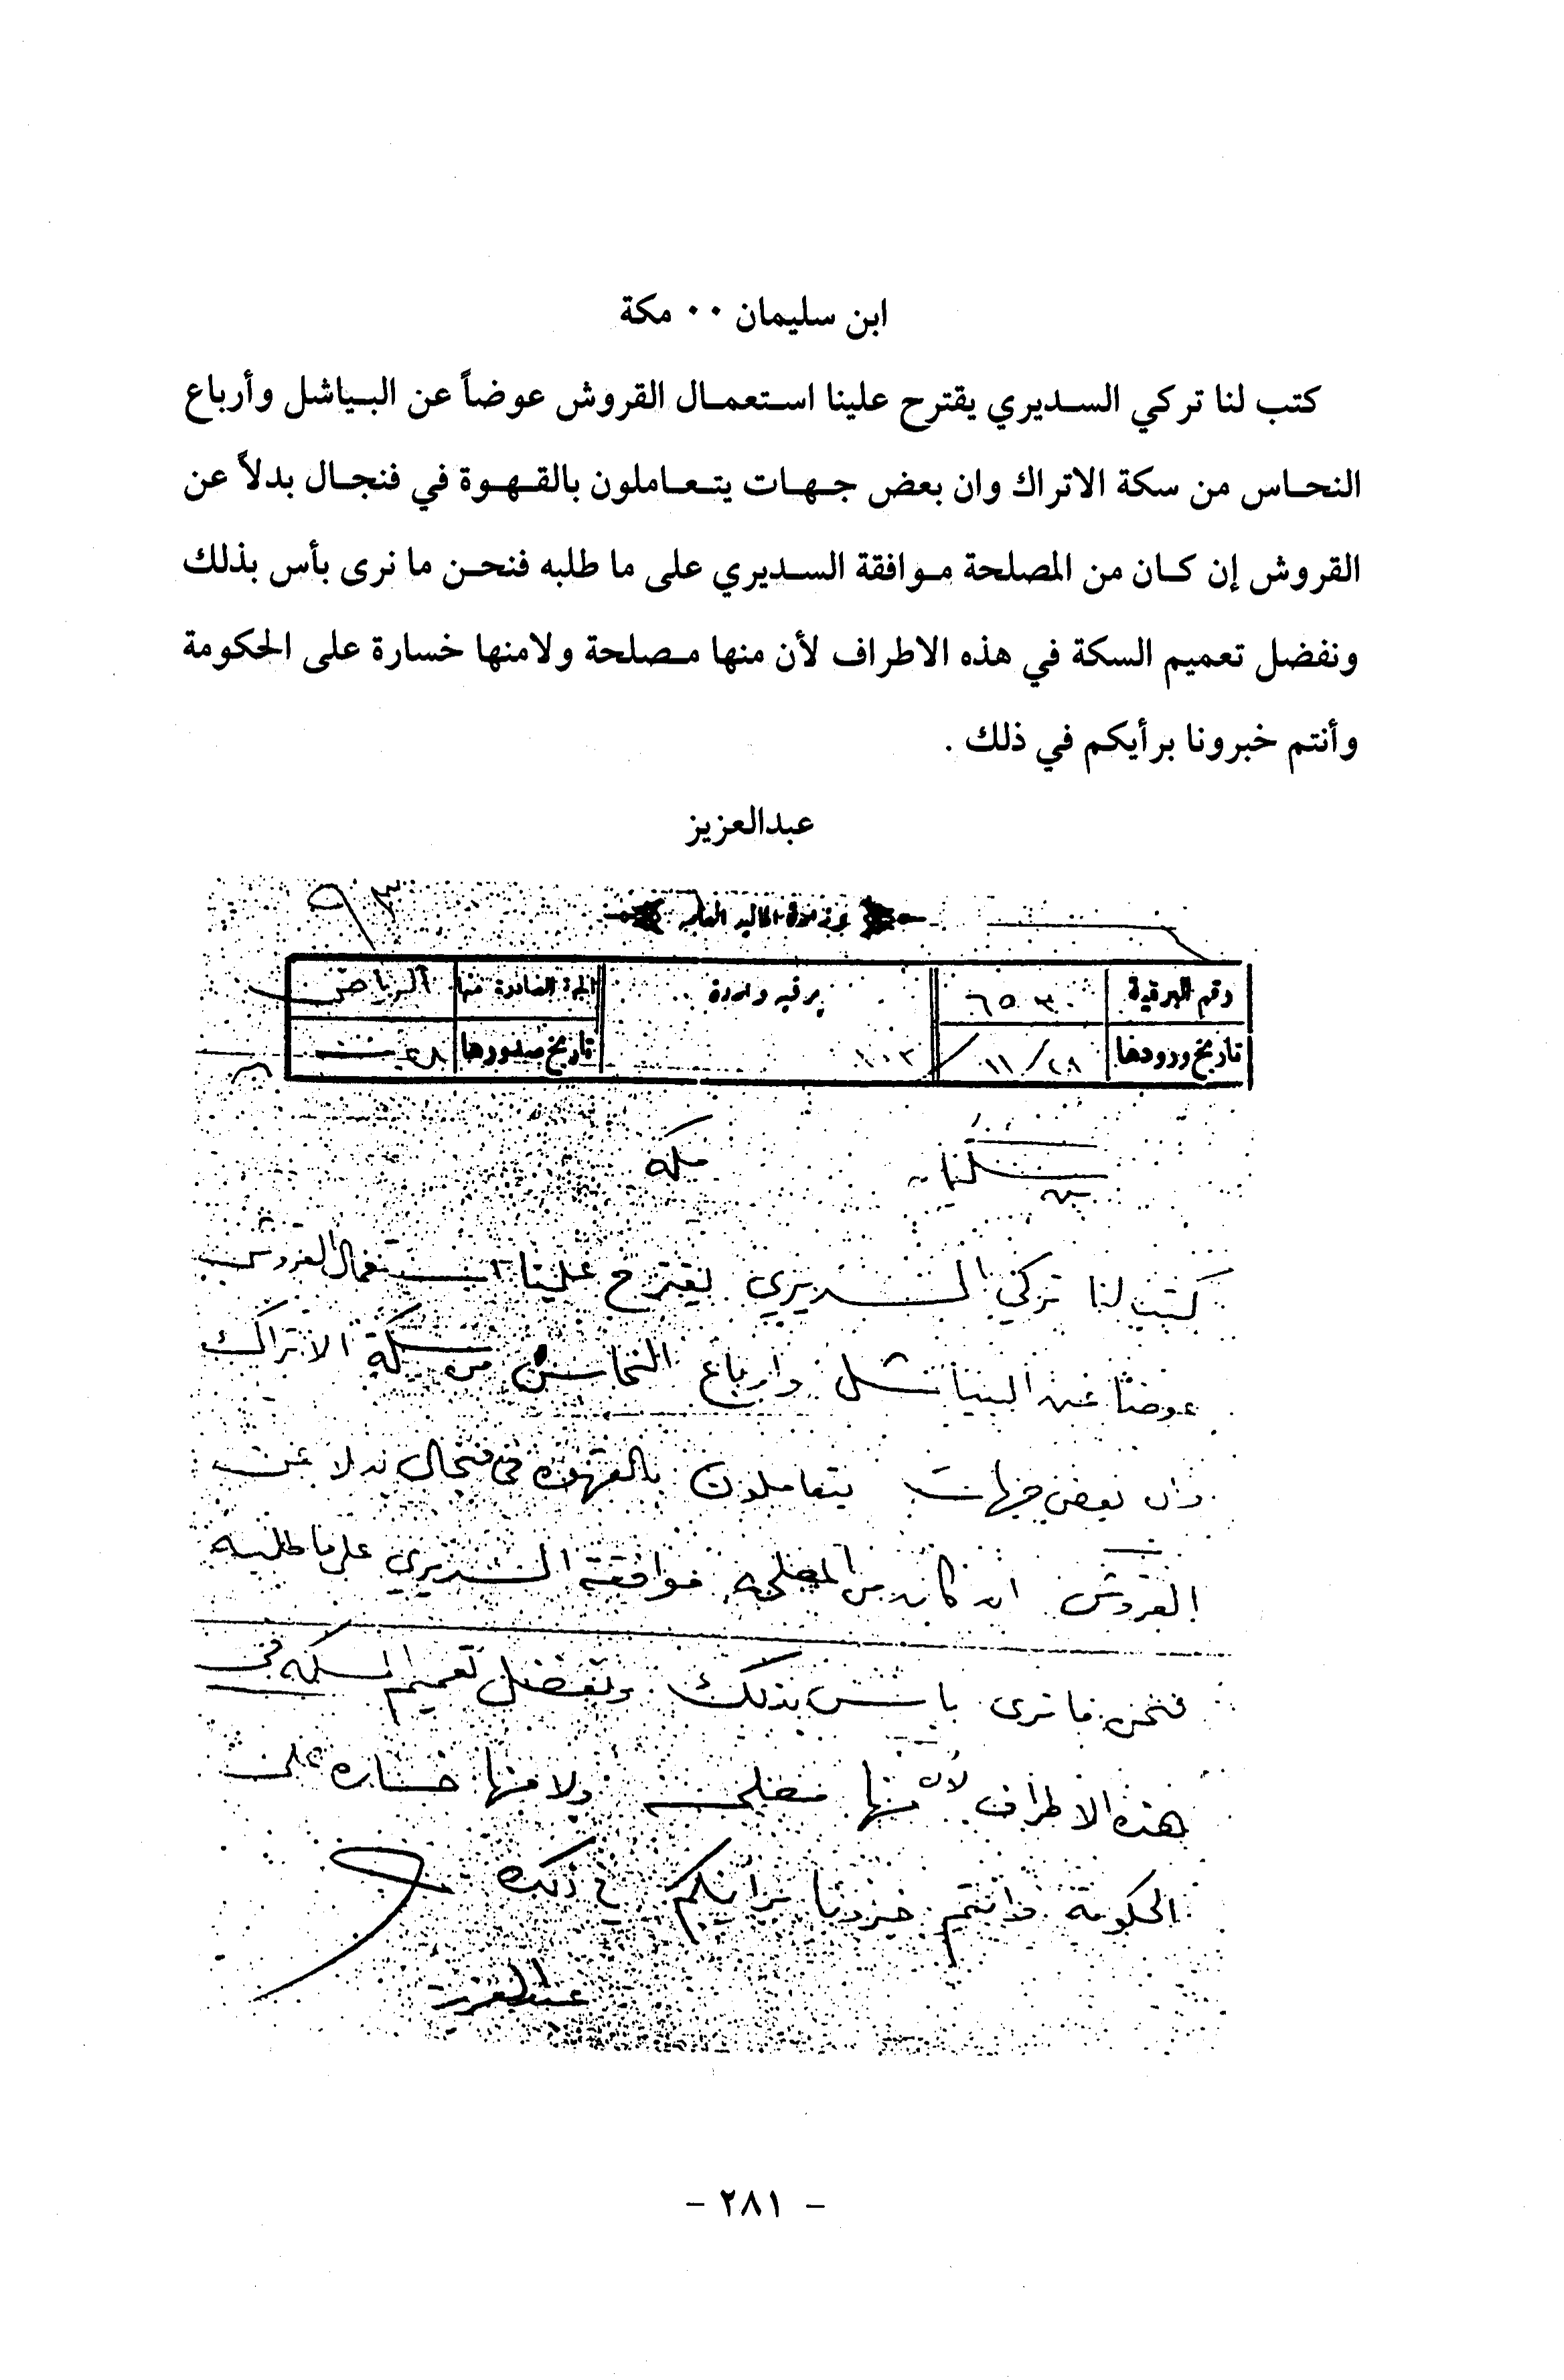 ابن سليمان ٠٠ مكة
كتب لنا تركي السديري يقترح علينا استعمال القروش عوضاً عن البياشل وأرباع
النحاس من سكة الاتراك وان بعض جهات يتعاملون بالقهوة في فنجال بدلاً عن
القروش إن كان من المصلحة موافقة السديري على ما طلبه فنحن ما نرى بأس بذلك
ونفضل تعميم السكة في هذه الاطراف لأن منها مصلحة ولامنها خسارة على الحكومة
وأنتم خبرونا برأيكم في ذلك .
عبدالعزيز
٩٣
رقم البرقية ٦٥٣٠ برقيه واردة الجهة الصادرة منها الرياض
تاريخ ورودها ٢٨/١١/ ١٠٠٢ تاريخ صدورها ٢٨
بن سليمان مكه
كتب لنا تركي السديري يقترح علينا استعمال القروش
عوضا عن البياشل وارباع النحاس من سكة الاتراك
وان بعض جهات يتعاملون بالقهوه في فنجال بدلا عن
القروش ان كان من المصلحه موافقة السديري على ما طلبه
فنحن ما نرى باس بذلك ونفضل تعميم السكه في
هذه الاطراف لان منها مصلحه ولا منها خساره على
الحكومة وانتم خبرونا برأيكم في ذلك
عبدالعزيز
- ٢٨١ -